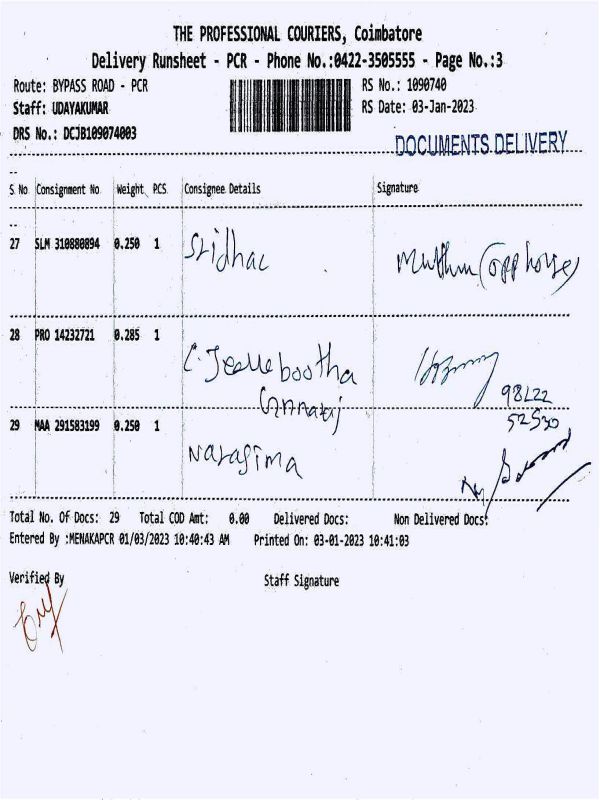 THE PROFESSIONAL COURIERS, Coimbatore
Delivery Runsheet - PCR - Phone No.:0422-3505555 - Page No.:3
Route: BYPASS ROAD - PCR RS No.: 1090740
Staff: UDAYAKUMAR RS Date: 03-Jan-2023
DRS No.: DCJB109074003
DOCUMENTS DELIVERY
S.No Consignment No Weight PCS Consignee Details Signature
27 SLM 310880894 0.250 1 Sridhar Muthu (opp house)
28 PRO 14232721 0.285 1
98422
52530
29 MAA 291583199 0.250 1 Narasima
Total No. Of Docs: 29 Total COD Amt: 0.00 Delivered Docs: Non Delivered Docs:
Entered By :MENAKAPCR 01/03/2023 10:40:43 AM Printed On: 03-01-2023 10:41:03
Verified By Staff Signature